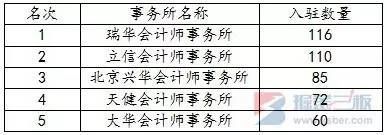 名次 事务所名称 入驻数量
1 瑞华会计师事务所 116
2 立信会计师事务所 110
3 北京兴华会计师事务所 85
4 天健会计师事务所 72
5 大华会计师事务所 60